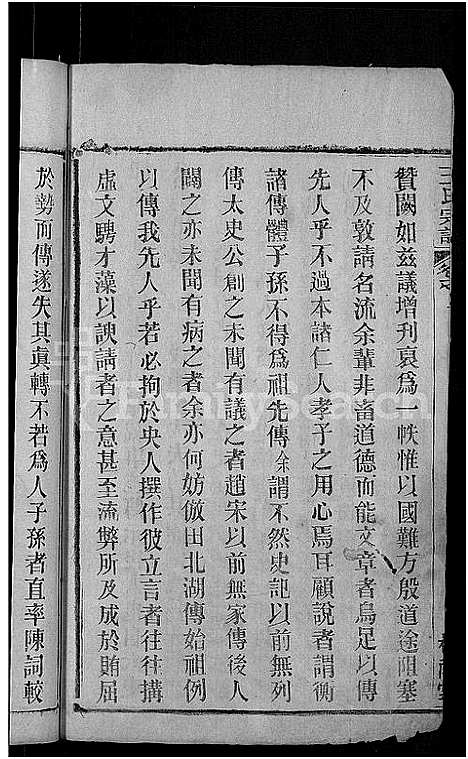 王氏宗譜
贊闕如茲議增刊裒爲一帙惟以國難方殷道途阻塞
不及敦請名流余輩非畜道德而能文章者烏足以傳
先人乎不過本諸仁人孝子之用心焉耳顧說者謂衡
諸傳體子孫不得爲祖先傳余謂不然史記以前無列
傳太史公創之未聞有議之者趙宋以前無家傳後人
闢之亦未聞有病之者余亦何妨倣田北湖傳始祖例
以傳我先人乎若必拘於央人撰作彼立言者往往搆
虛文騁才藻以諛請者之意甚至流弊所及成於賄屈
於勢而傳遂失其眞轉不若爲人子孫者直率陳詞較
FamilySearch